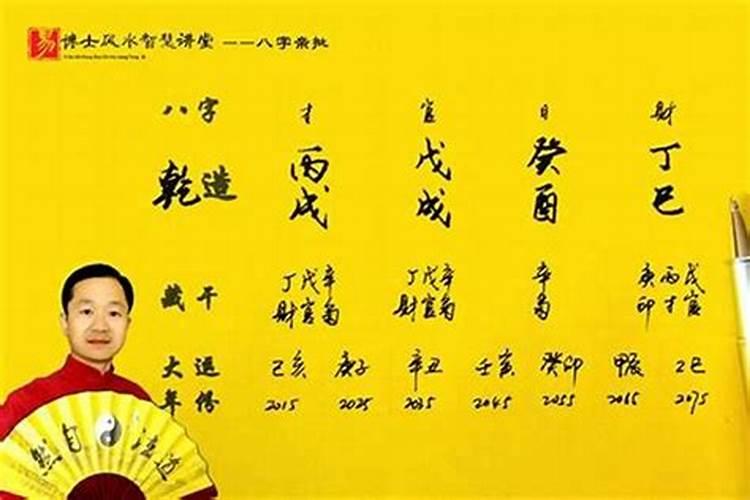 易 博士风水智慧讲堂 ——八字亲批
八字 才 官 日 财
乾造 丙戌 戊戌 癸酉 丁巳
藏干 丁戊辛 丁戊辛 辛 庚丙戊
财官枭 财官枭 枭 印才官
大运 己亥 庚子 辛丑 壬寅 癸卯 甲辰 乙巳
年 2015 2025 2035 2045 2055 2065 2075
道法自然